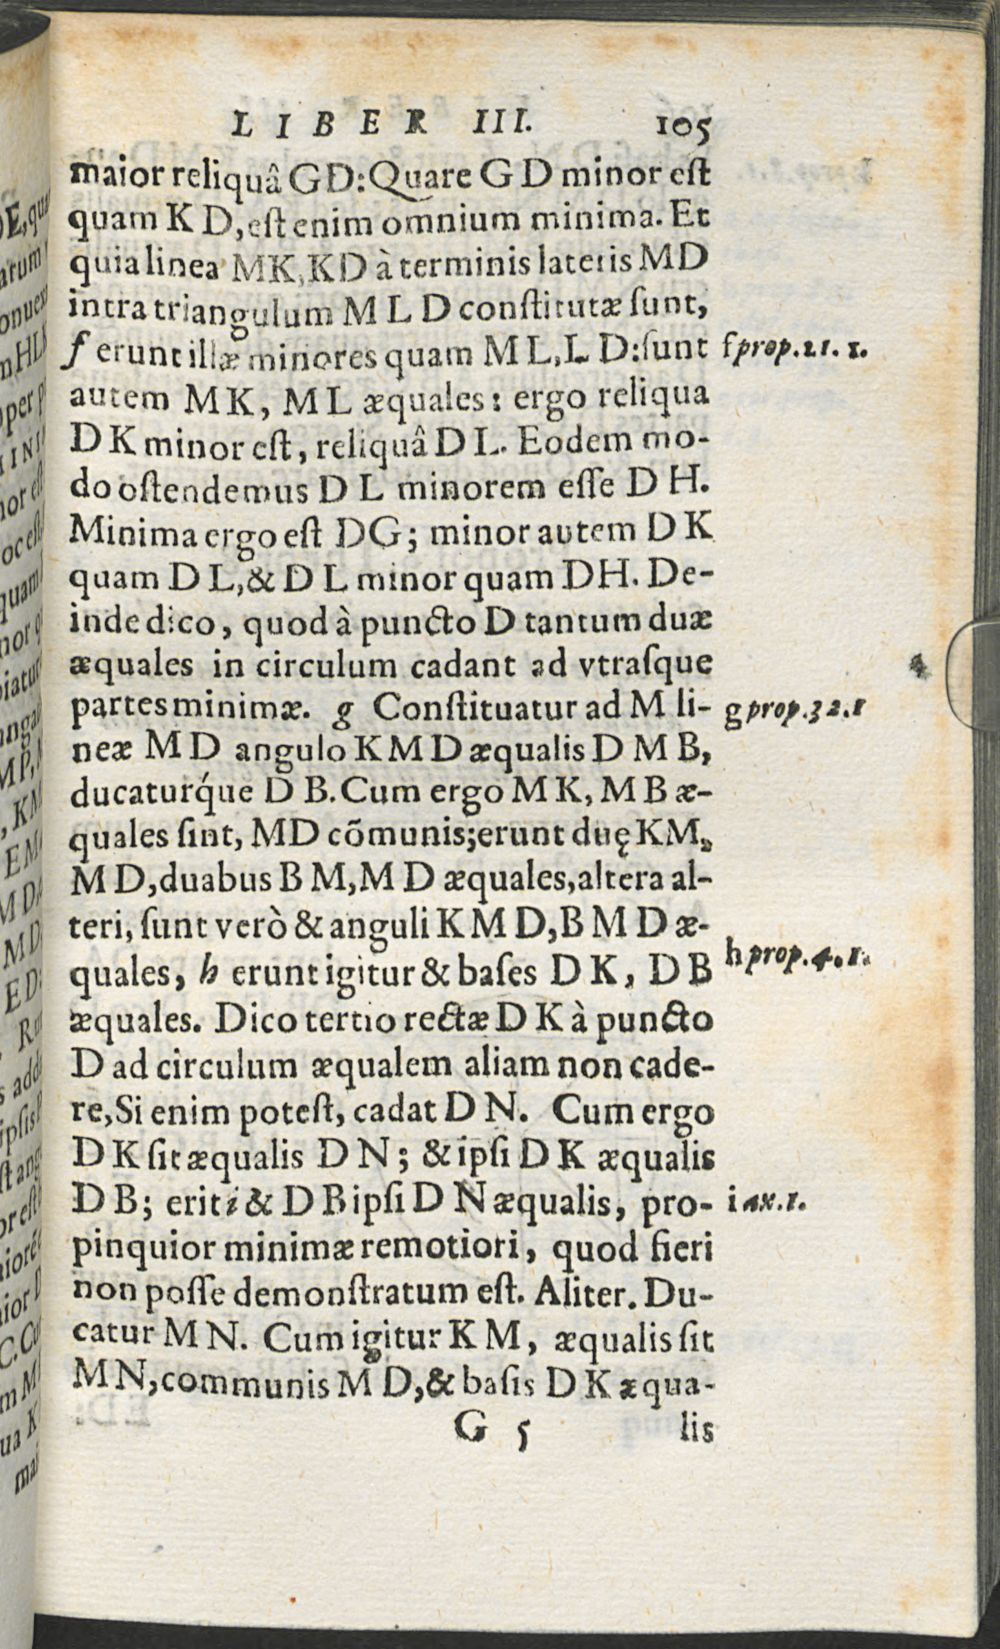 LIBER III. 105
maior reliquâ GD: Quare G D minor est
quam K D, est enim omnium minima. Et
quia linea MK, KD à terminis lateris MD
intra triangulum M L D constitutæ sunt,
f erunt illæ minores quam M L, L D: sunt
f prop. 21. 1.
autem M K, M L æquales: ergo reliqua
D K minor est, reliquâ D L. Eodem mo-
do ostendemus D L minorem esse D H.
Minima ergo est DG; minor autem D K
quam D L, & D L minor quam DH. De-
inde dico, quod à puncto D tantum duæ
æquales in circulum cadant ad vtrasque
partes minimæ. g Constituatur ad M li-
g prop. 32. 1
neæ M D angulo K M D æqualis D M B,
ducaturq́ue D B. Cum ergo M K, M B æ-
quales sint, MD cõmunis; erunt duę KM,
M D, duabus B M, M D æquales, altera al-
teri, sunt verò & anguli K M D, B M D æ-
quales, h erunt igitur & bases D K, D B
h prop. 4. 1.
æquales. Dico tertio rectæ D K à puncto
D ad circulum æqualem aliam non cade-
re, Si enim potest, cadat D N. Cum ergo
D K sit æqualis D N; & ipsi D K æqualis
D B; erit i & D B ipsi D N æqualis, pro-
i ax. 1.
pinquior minimæ remotiori, quod fieri
non posse demonstratum est. Aliter. Du-
catur M N. Cum igitur K M, æqualis sit
M N, communis M D, & basis D K æqua-
G 5 lis